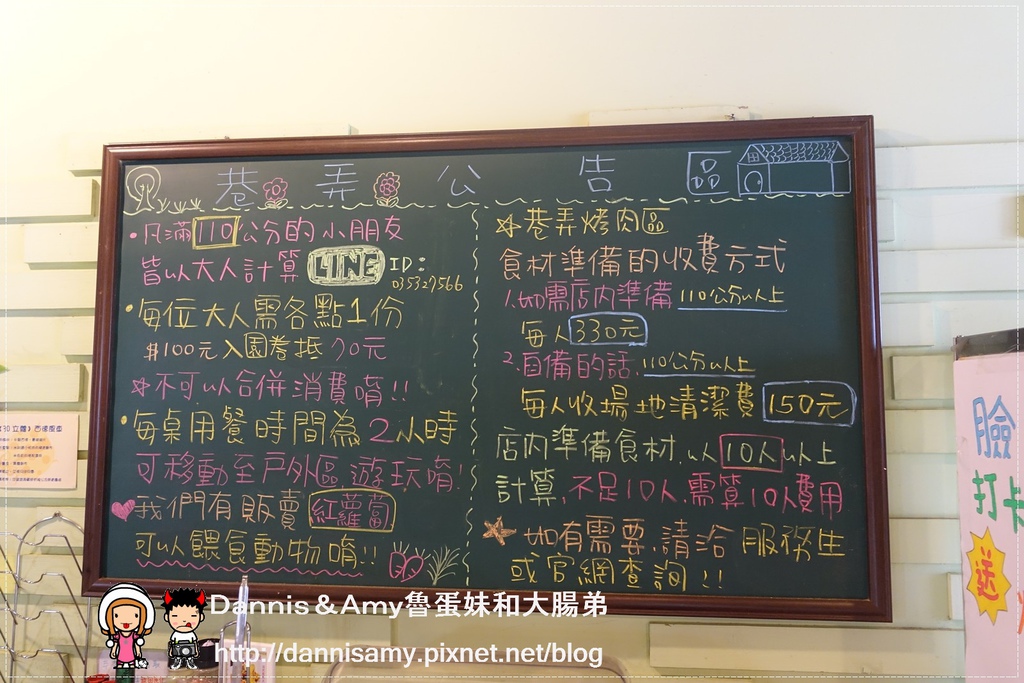 巷弄公告區
•凡滿110公分的小朋友
皆以大人計算 LINE ID:
035327566
•每位大人需各點1份
$100元入園卷抵90元
*不可以合併消費唷!!
•每桌用餐時間為2小時
可移動至戶外區遊玩唷!
♥我們有販賣紅蘿蔔
可以餵食動物唷!!
*巷弄烤肉區
食材準備的收費方式
1.如需店內準備110公分以上
每人330元
2.自備的話,110公分以上
每人收場地清潔費150元
店內準備食材,以10人以上
計算,不足10人,需算10人費用
★如有需要,請洽服務生
或官網查詢!!
臉
打卡
送
Dannis & Amy魯蛋妹和大腸弟
http://dannisamy.pixnet.net/blog